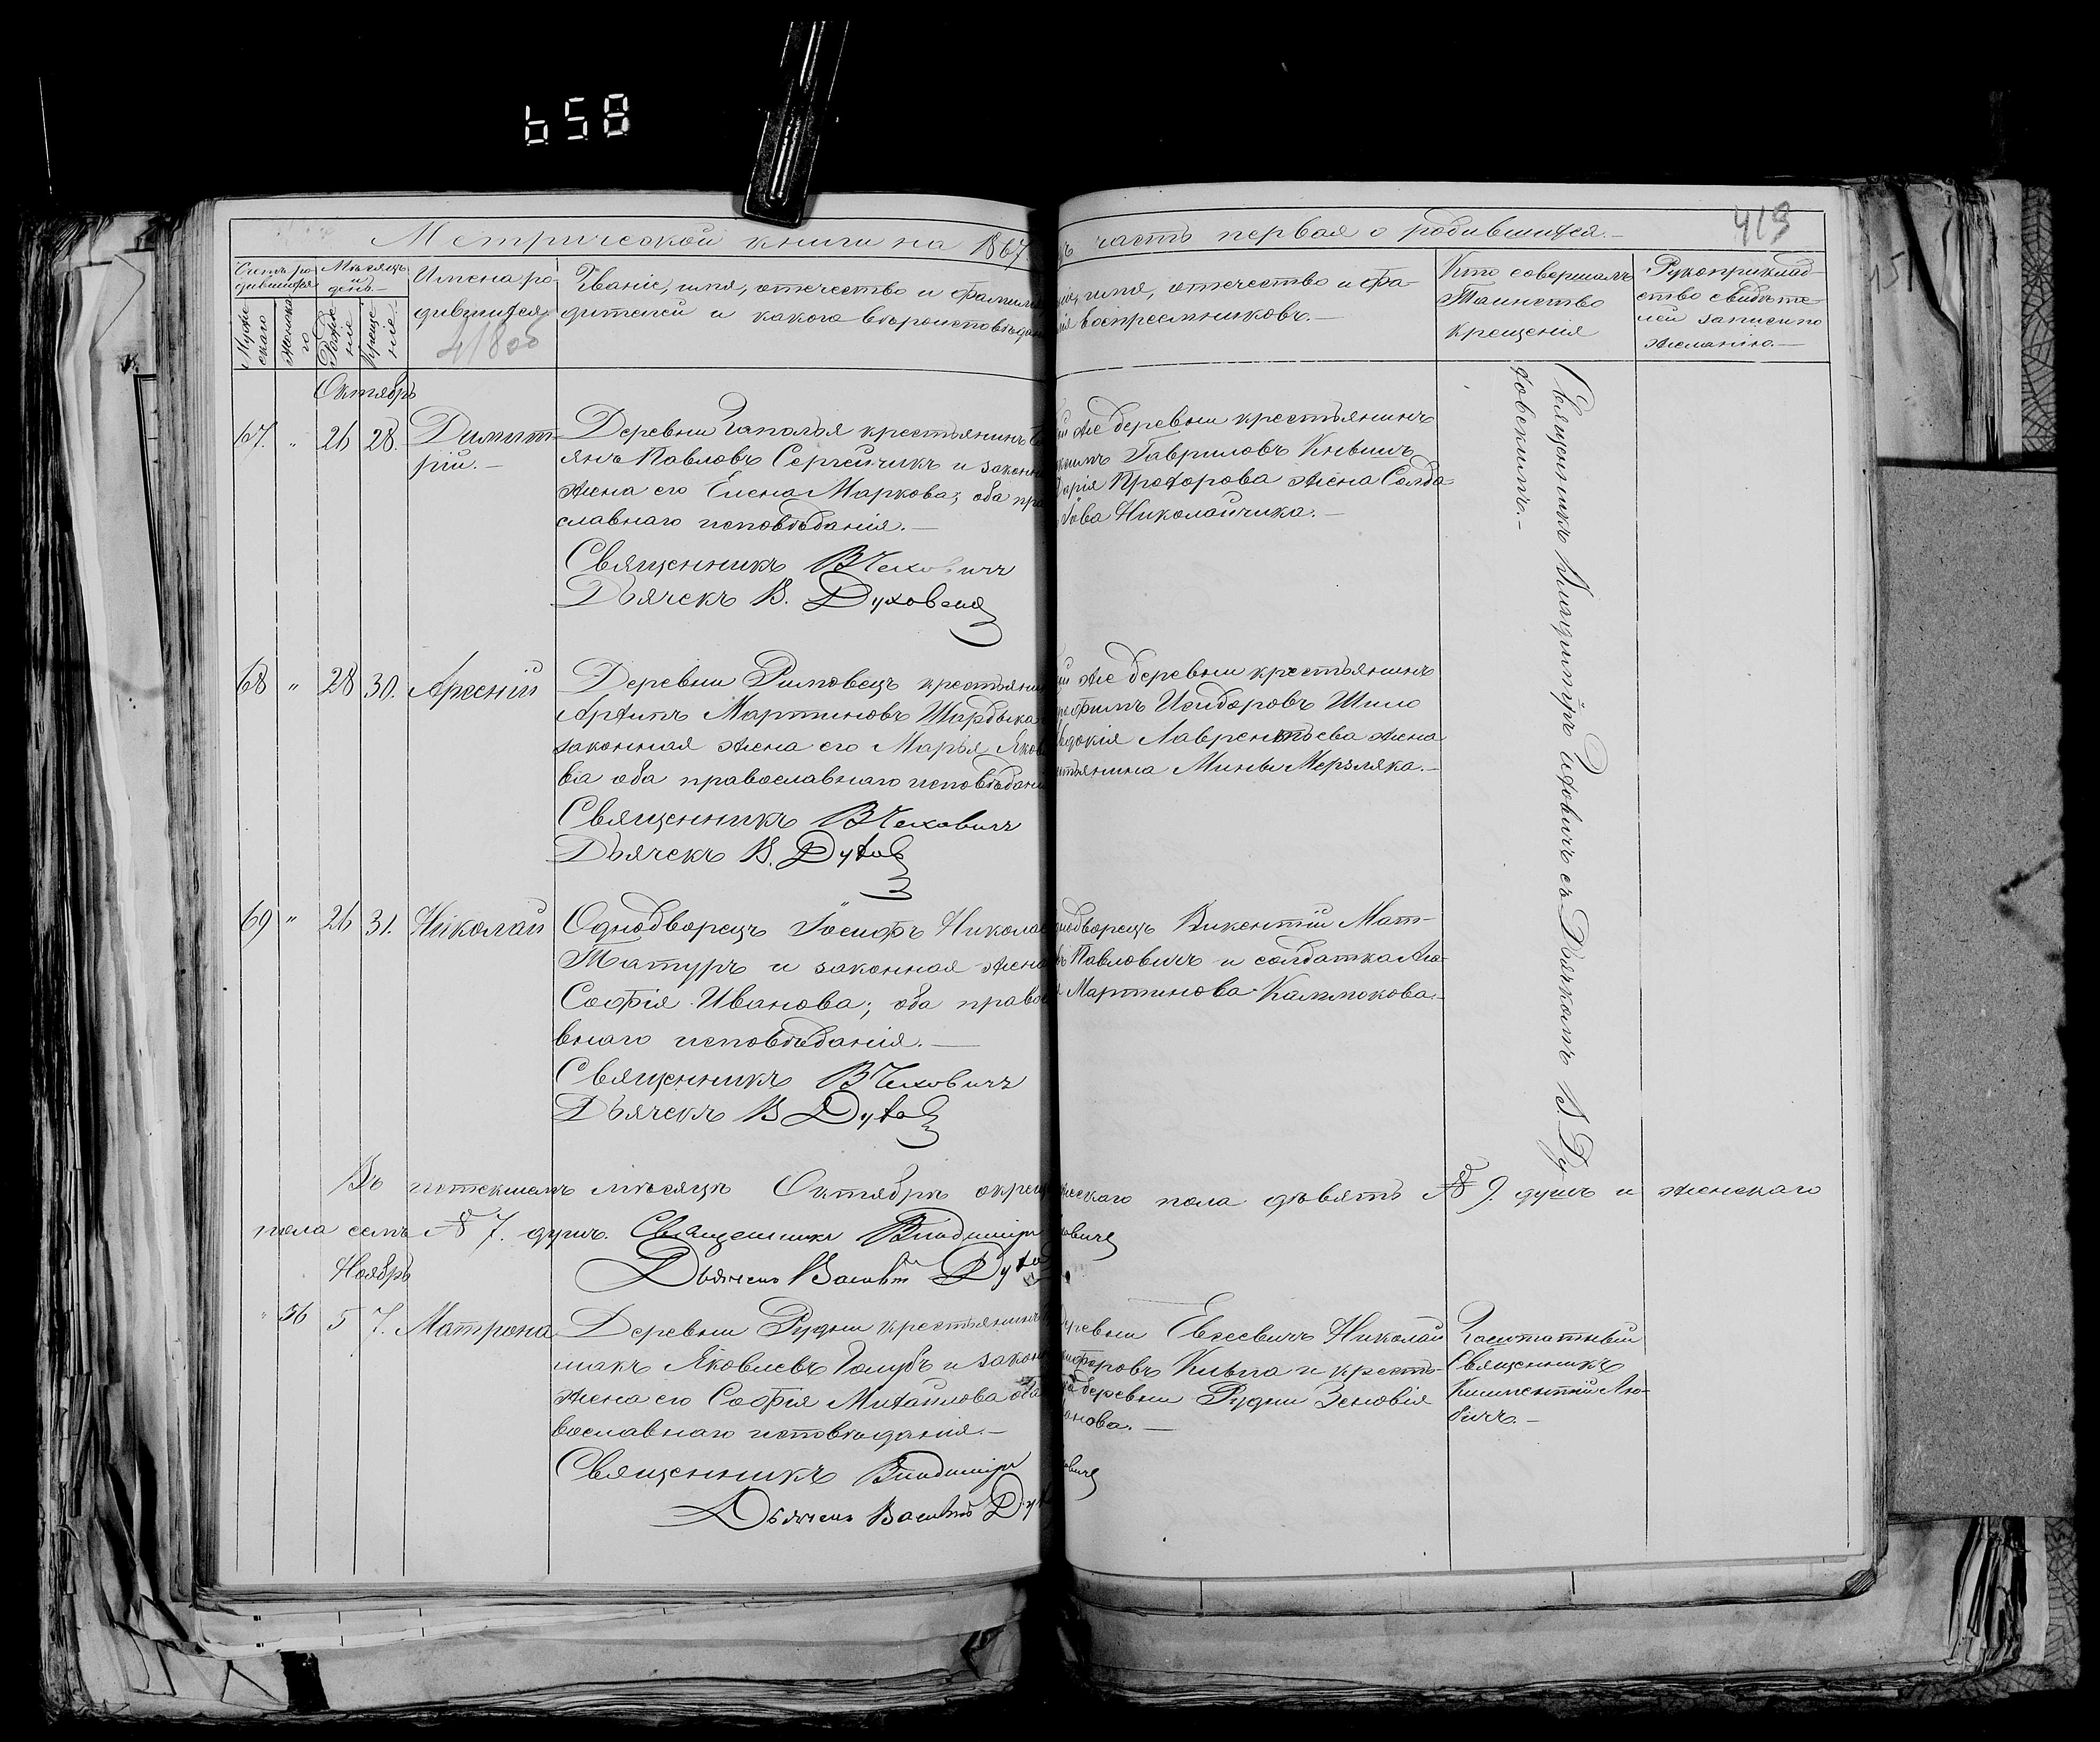 658
413
Метрической книги на 1867
часть первая о родившихся.
Счетъ родившихся
Мужескаго
Женскаго
Мѣсяцъ и день
Рожденія
Крещенія
Имена родившихся
418 об
Званіе, имя, отечество и фамилія
дителей и какого вѣроисповѣдан
имя, отечество и фа-
воспреемниковъ.
Кто совершалъ
Таинство
крещенія
Рукоприклад-
ство свидѣте-
лей записи по
желанію.
Октябрь
67. " 26 28. Димит-
рій.
Деревни крестьянинъ
Павловъ Сергейчикъ и законн
жена его Елена Маркова; оба пра
славнаго исповѣданія.
Священникъ В Чеховичъ
Дьячекъ В. Духовскій
же деревни крестьянинъ
Гавриловъ Кнышъ
Прохорова жена Солда-
Николайчика.
68 " 28 30. Арсеній
Деревни Римовецъ крестьяни
Архипъ Мартиновъ Шардыка
законная жена его Марья Яков
ва оба православнаго исповѣдані
Священникъ В Чеховичъ
Дьячекъ В. Духов
же деревни крестьянинъ
Исидоровъ Шило
Лаврентьева жена
Мины Мерзляка.
69 " 26 31. Николай
Однодворецъ Іосифъ Никола
Татуръ и законная жена
Софія Иванова; оба право
внаго исповѣданія.
Священникъ В Чеховичъ
Дьячекъ В Духов
нодворецъ Викентій Мат-
Павловичъ и солдатка Ага-
Мартинова Калмокова.
Священникъ Владиміръ Чеховичъ съ Дьячкомъ В. Ду-
ховскимъ.
Въ истекшемъ мѣсяцѣ Октябрѣ окрещ
жескаго пола дѣвять № 9. душъ и женскаго
пола семь № 7. душъ. Священникъ Владиміръ
овичъ
Дьячекъ Василій Духо
Ноябрь
" 56 5 7. Матрона
Деревни Рудни крестьянинъ
Яковлевъ Голубъ и закон
жена его Софія Михайлова оба
вославнаго исповѣданія.
Священникъ Владиміръ
овичъ
Дьячекъ Василій Дух
деревни Евсеевичъ Николай
Кныша и кресть-
деревни Рудни Зеновія
анова.
Заштатный
Священникъ
Климентій Лю-
бичъ.